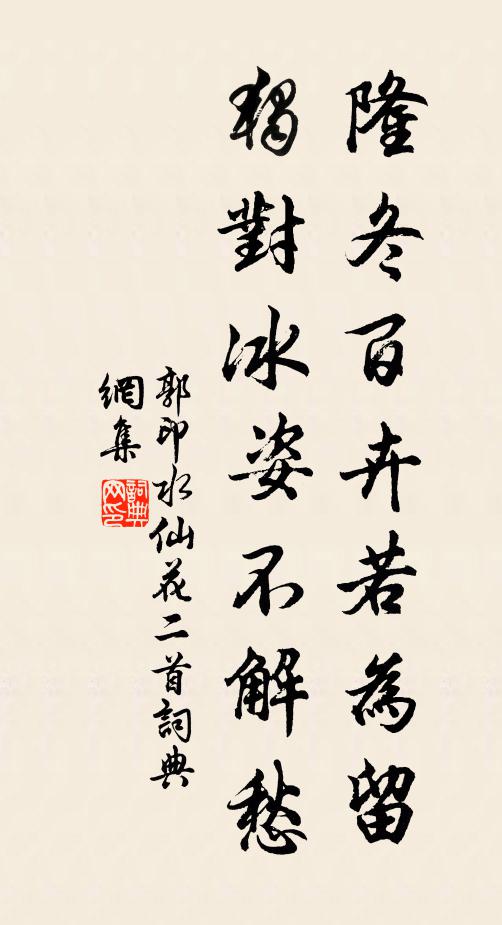 隆冬百卉若為留
獨對冰姿不解愁
郭印水仙花二首詞典
網集
詞典
网印